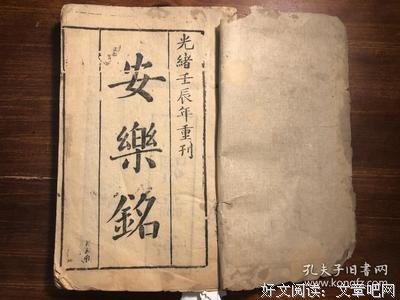 光緒壬辰年重刊
安樂銘
孔夫子旧书网
www.kongfz.com
好文阅读：文章吧网